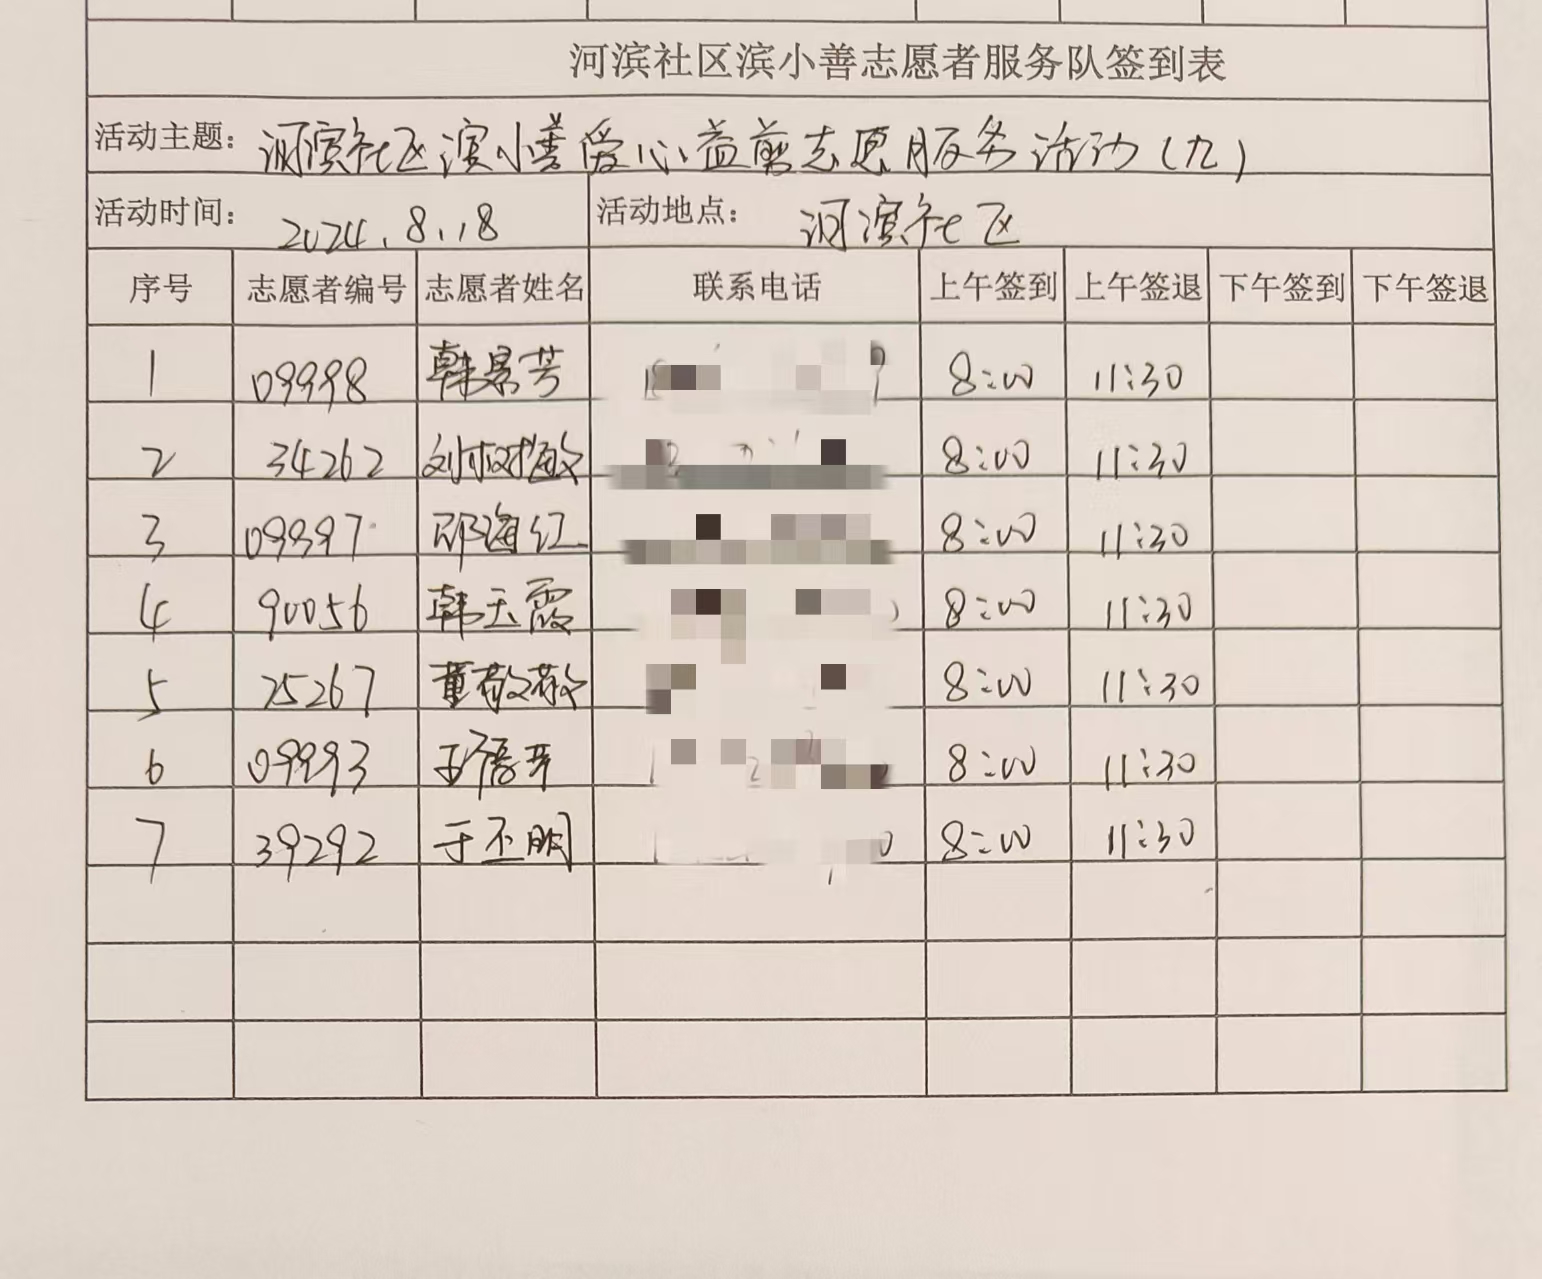 河滨社区滨小善志愿者服务队签到表
活动主题：河滨社区滨小善爱心益剪志愿服务活动（九）
活动时间：2024.8.18 活动地点：河滨社区
序号 志愿者编号 志愿者姓名 联系电话 上午签到 上午签退 下午签到 下午签退
1 09998 韩景芳 8:00 11:30
2 34262 刘树敏 8:00 11:30
3 09997 邵海红 8:00 11:30
4 90056 韩玉霞 8:00 11:30
5 25267 董敬敬 8:00 11:30
6 09993 8:00 11:30
7 39292 于丕明 8:00 11:30